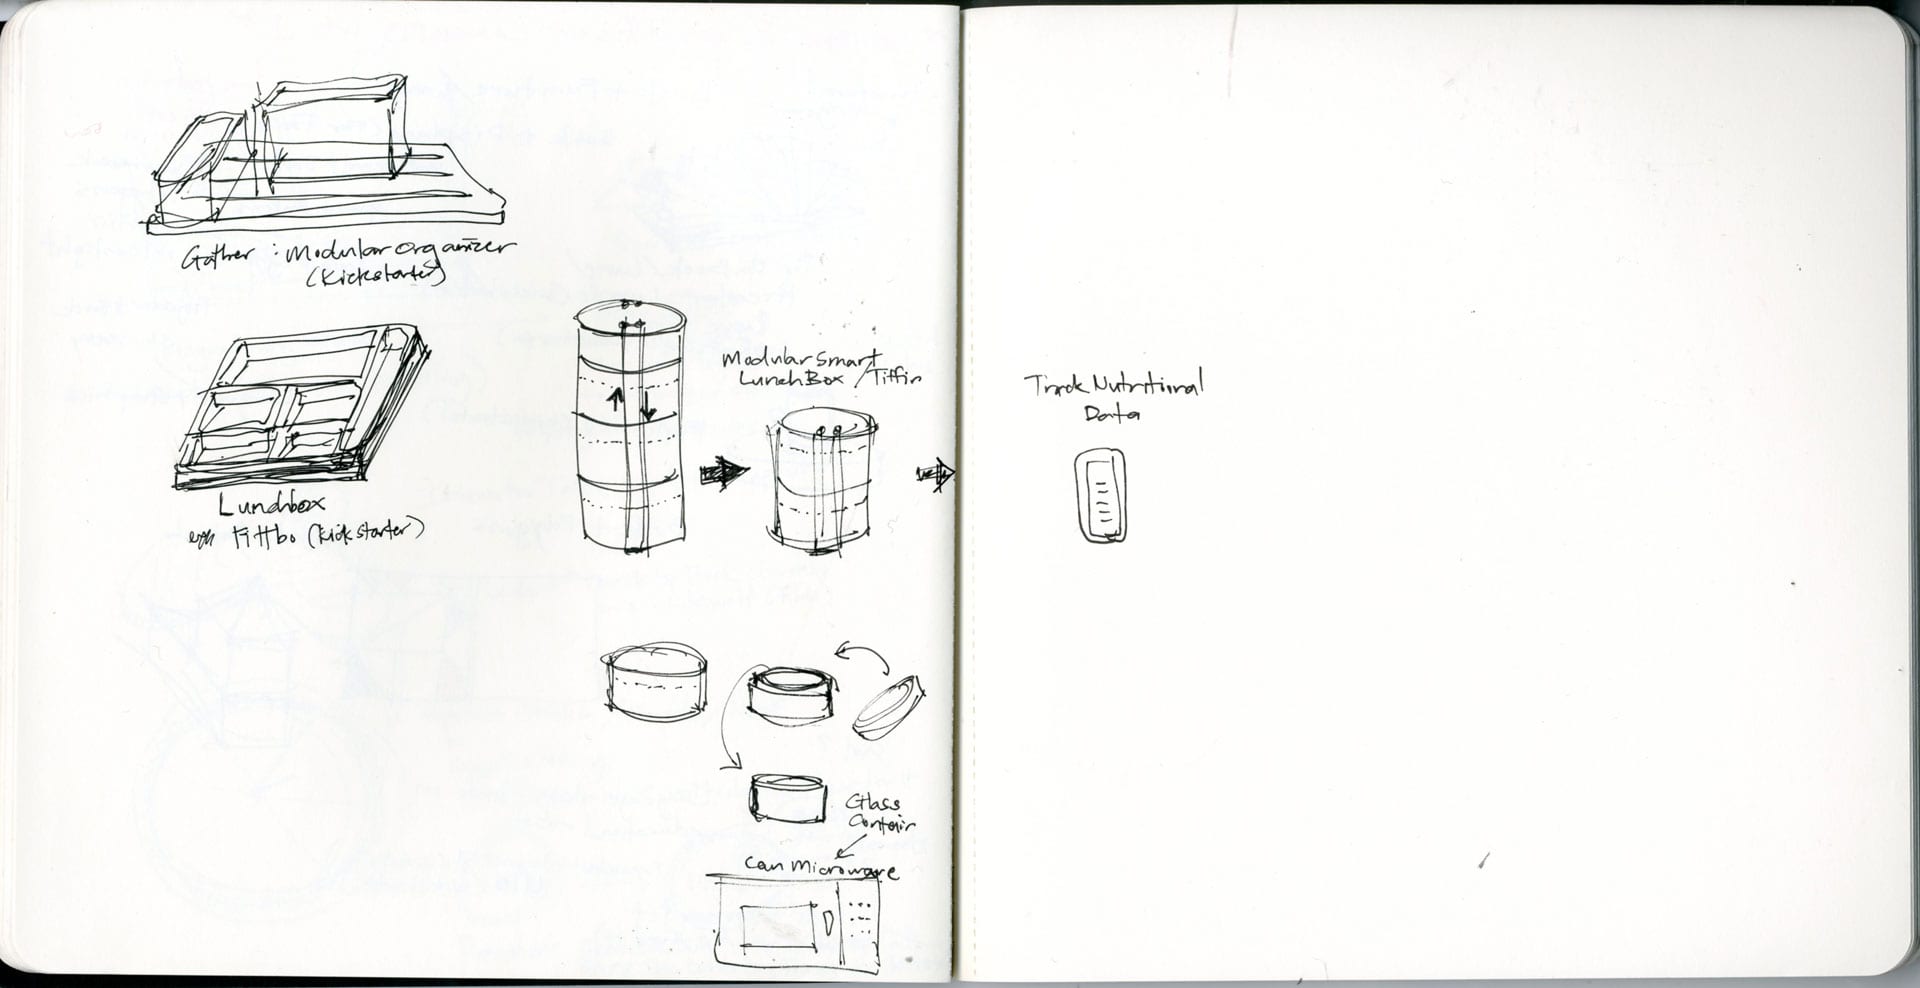 Gather : Modular Organizer
(Kickstarter)
Lunchbox
Fittbo (Kickstarter)
Modular Smart
LunchBox / Tiffin
Track Nutritional
Data
Glass
Contair
Can Microware